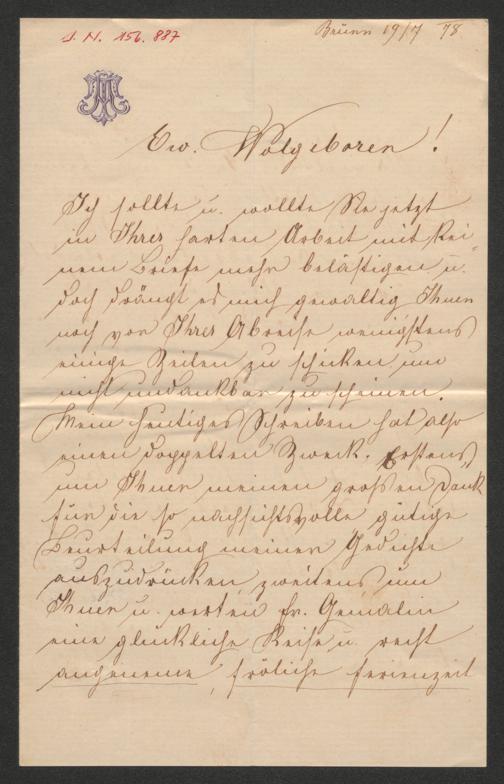 J. N. 156.887
Brünn 19/7 78
Ew. Wolgeboren!
Ich sollte u. wollte Sie jetzt
in Ihrer harten Arbeit mit kei-
nem Briefe mehr belästigen u.
doch drängt es mich gewaltig Ihnen
noch vor Ihrer Abreise wenigstens
einige Zeilen zu schicken um
nicht undankbar zu scheinen.
Mein heutiges Schreiben hat also
einen doppelten Zweck. Erstens,
um Ihnen meinen großen Dank
für die so nachsichtsvolle gütige
Beurteilung meiner Gedichte
auszudrücken, zweitens um
Ihnen u. werten Fr. Gemalin
eine glückliche Reise u. recht
angeneme, fröliche Ferienzeit